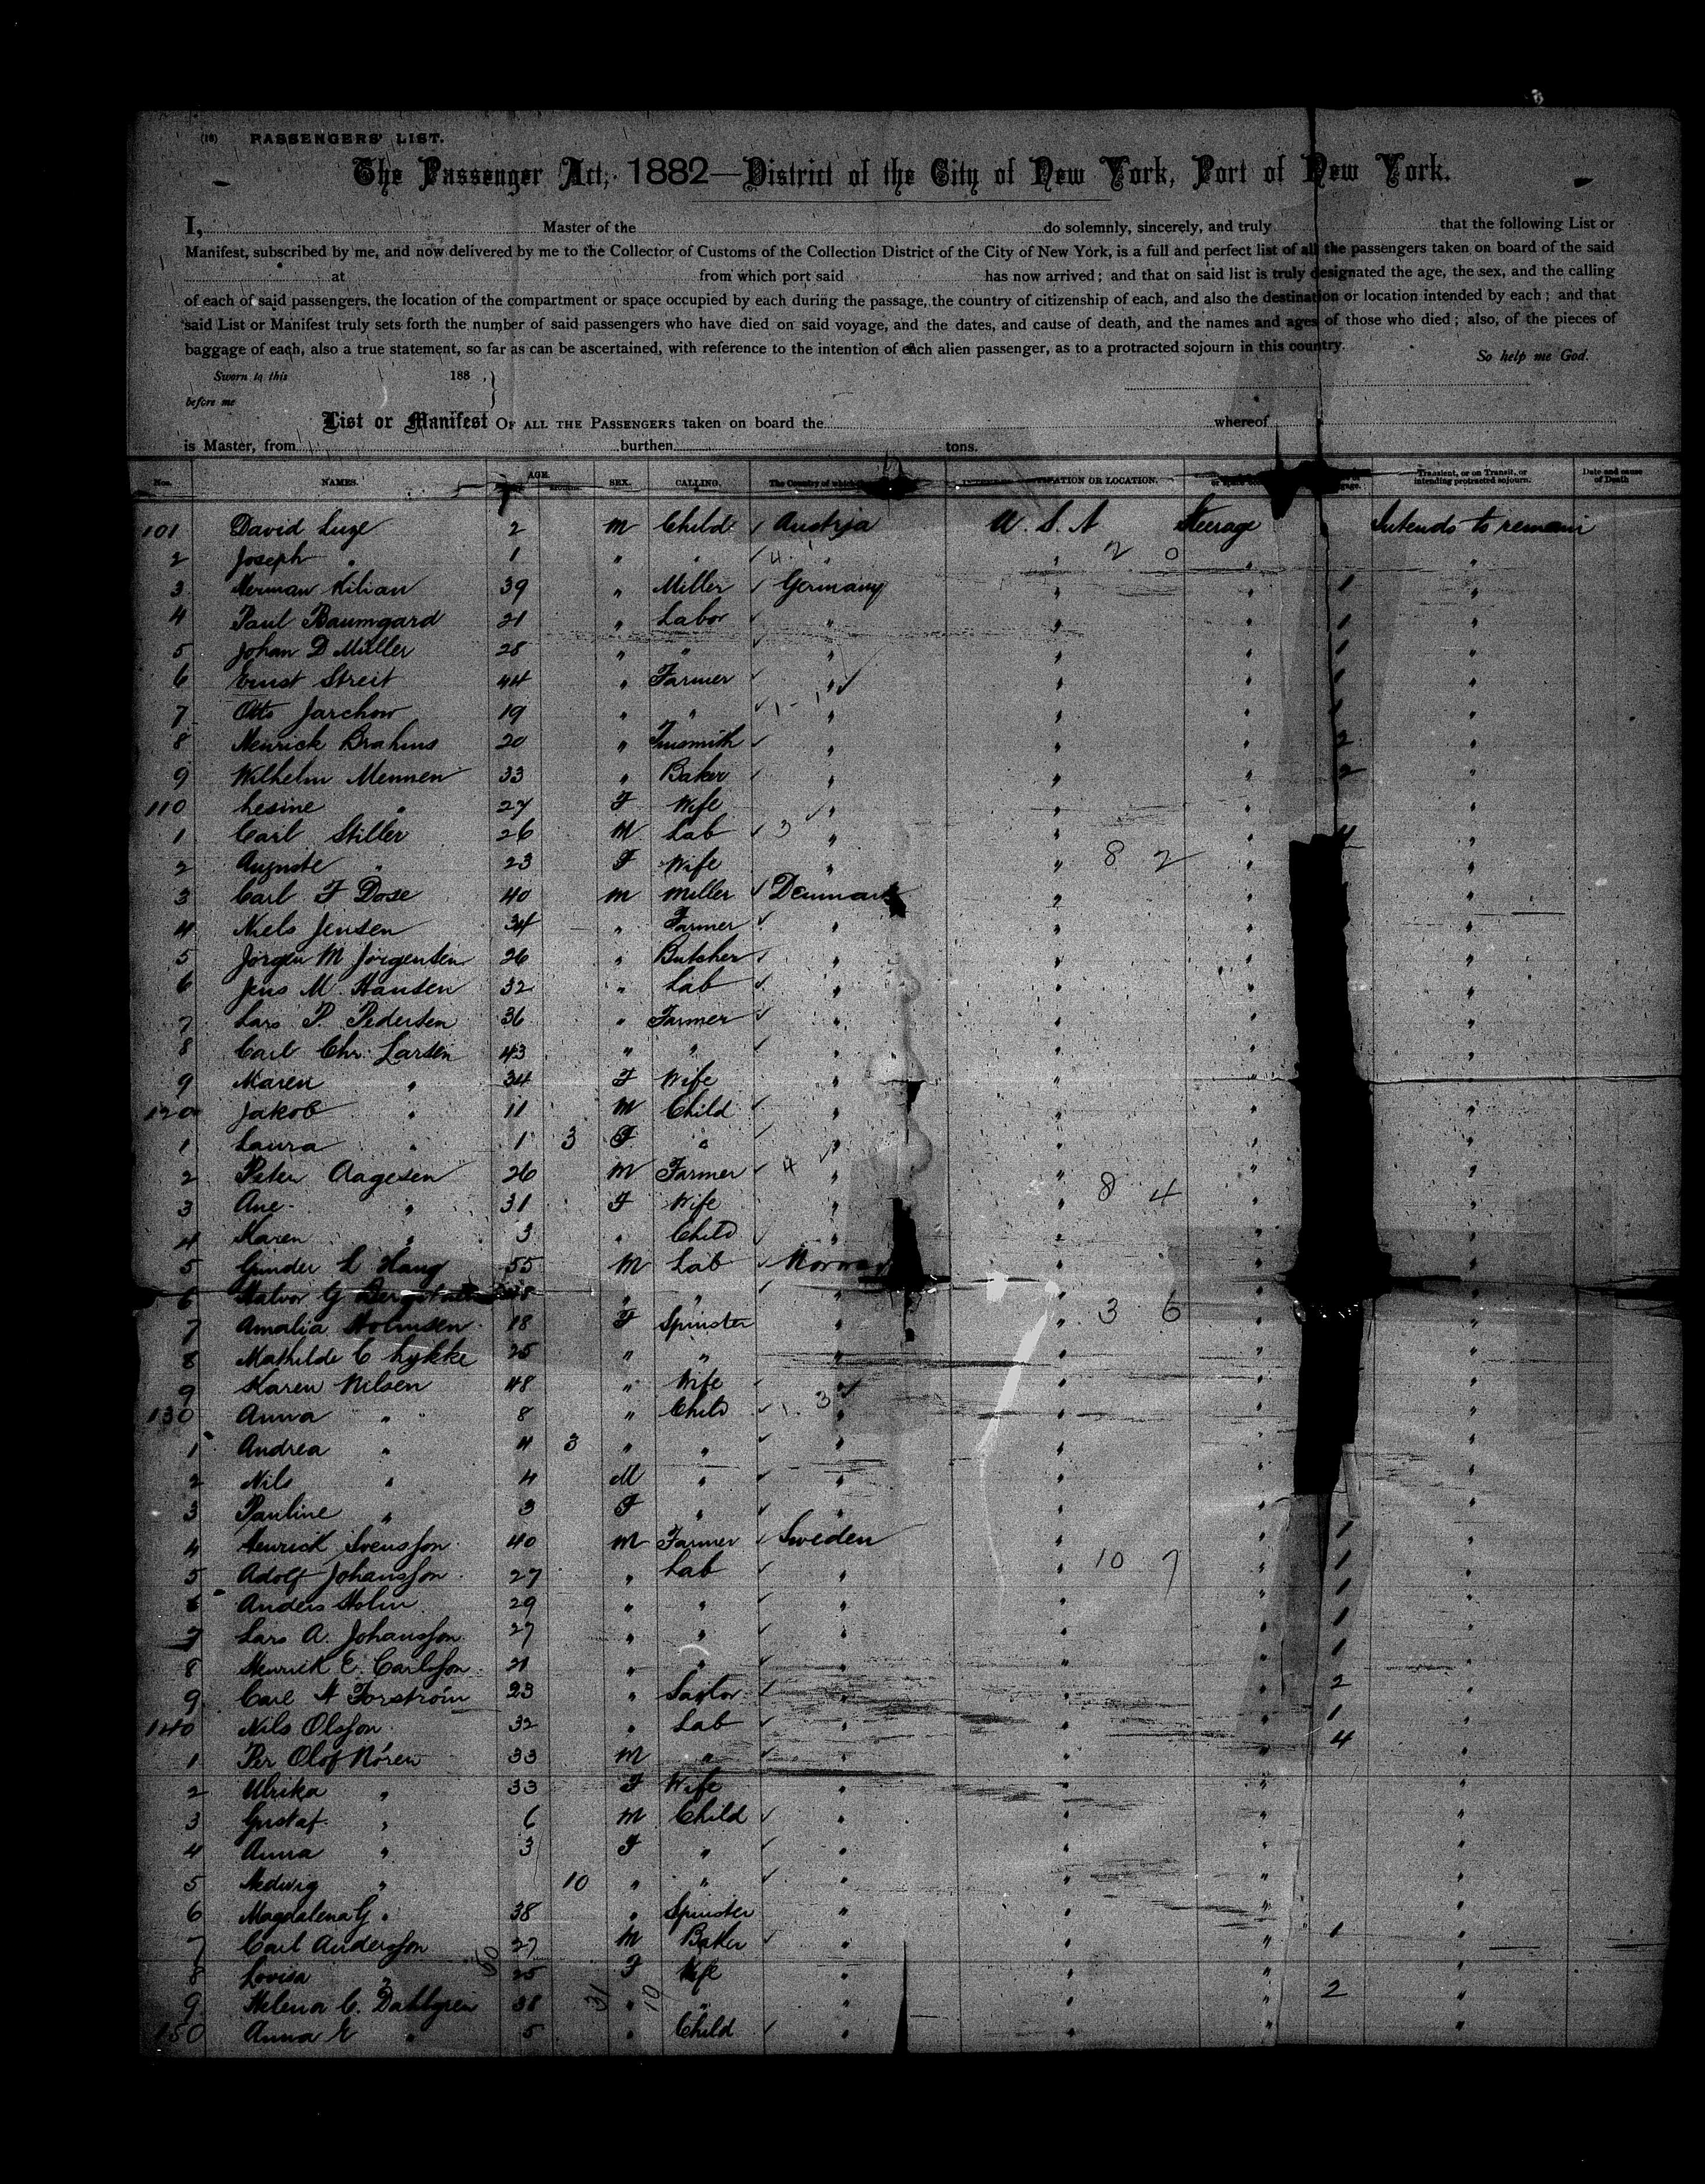 (16) PASSENGERS' LIST.
The Passenger Act, 1882—District of the City of New York, Port of New York.
I, Master of the do solemnly, sincerely, and truly that the following List or
Manifest, subscribed by me, and now delivered by me to the Collector of Customs of the Collection District of the City of New York, is a full and perfect list of all the passengers taken on board of the said
at from which port said has now arrived; and that on said list is truly designated the age, the sex, and the calling
of each of said passengers, the location of the compartment or space occupied by each during the passage, the country of citizenship of each, and also the destination or location intended by each; and that
said List or Manifest truly sets forth the number of said passengers who have died on said voyage, and the dates, and cause of death, and the names and ages of those who died; also, of the pieces of
baggage of each, also a true statement, so far as can be ascertained, with reference to the intention of each alien passenger, as to a protracted sojourn in this country.
So help me God.
Sworn to this 188 ,}
before me
List or Manifest OF ALL THE PASSENGERS taken on board the whereof
is Master, from burthen tons.
Nos. NAMES. AGE. SEX. CALLING. The Country of which OR LOCATION. Transient, or on Transit, or intending protracted sojourn. Date and cause of Death
101 David 2 M Child Austria U. S. A Steerage Intends to remain
2 Joseph " 1 " " 4 " 2 0 " "
3 Herman Kilian 39 " Miller Germany " " 1 "
4 Paul Baumgard 21 " Labor " " " 1 "
5 Johan D Müller 28 " " " " " 1 "
6 Ernst Streit 44 " Farmer " " " 1 "
7 Otto Jarchow 19 " " " " " 1 "
8 Henrick Brahms 20 " Tinsmith " " " 2 "
9 Wilhelm Mennen 33 " Baker " " " 2 "
110 Gesine " 27 F Wife " " " "
1 Carl Stiller 26 M Lab 3 " " " 4 "
2 Auguste " 23 F Wife " " 8 2 " "
3 Carl F Dose 40 M Miller Denmark " " "
4 Niels Jensen 34 " Farmer " " " "
5 Jørgen M Jörgensen 26 " Butcher " " " "
6 Jens M. Hansen 32 " Lab " " " "
7 Lars P. Pedersen 36 " Farmer " " " "
8 Carl Chr. Larsen 43 " " " " " "
9 Maren " 34 F Wife " " " "
120 Jakob " 11 M Child " " " "
1 Laura " 1 3 F " " " " "
2 Peter Aagesen 26 M Farmer 4 " " " "
3 Ane " 31 F Wife " " 8 4 " "
4 Karen " 3 " Child " " " "
5 Gunder L Haug 55 M Lab Norway " " "
6 Halvor G " " " " " "
7 Amalia Holmsen 18 F Spinster " " 3 6 " "
8 Mathilde C Lykke 25 " " " " " "
9 Karen Nilsen 48 " Wife " " " "
130 Anna " 8 " Child 3 " " " "
1 Andrea " 4 3 " " " " " "
2 Nils " 4 M " " " " "
3 Pauline " 3 F " " " " "
4 Henrick Svensson 40 M Farmer Sweden " " 1 "
5 Adolf Johansson 27 " Lab " " 10 7 " 1 "
6 Anders Holm 29 " " " " " 1 "
7 Lars A. Johansson 27 " " " " " 1 "
8 Henrick E. Carlsson 21 " " " " " 1 "
9 Carl A Forström 23 " " " " 2 "
140 Nils Olsson 32 " Lab " " " 1 "
1 Per Olof Nören 33 M " " " " 4 "
2 Ulrika " 33 F Wife " " " "
3 Gustaf " 6 M Child " " " "
4 Anna " 3 F " " " " "
5 Hedwig " 10 " " " " " "
6 Magdalena G " 38 " Spinster " " " "
7 Carl Andersson 27 M Baker " " " 1 "
8 Lovisa 25 F Wife " " "
9 Helena C. Dahlgren 38 " " " " " 2 "
150 Anna E " 5 " Child " " " "